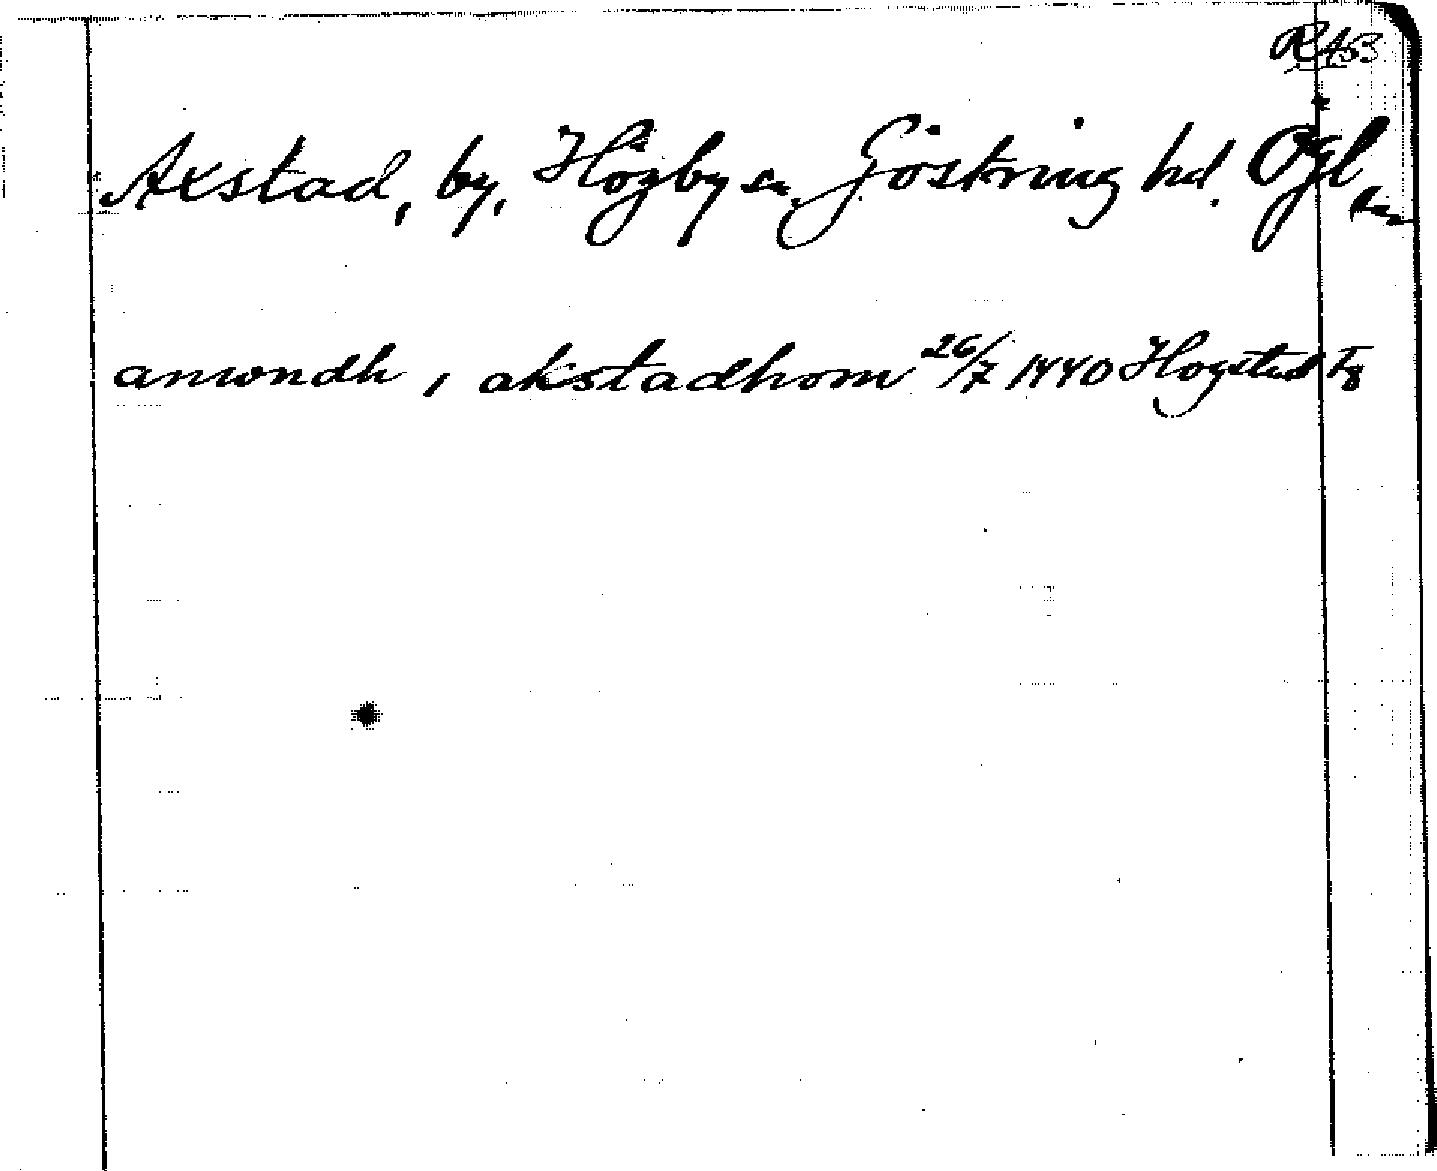 RA B
Axstad, by, Högby sn. Göstring hd. Ögl. län
amondh i akstadhom 26/7 1440 Hogstad F8